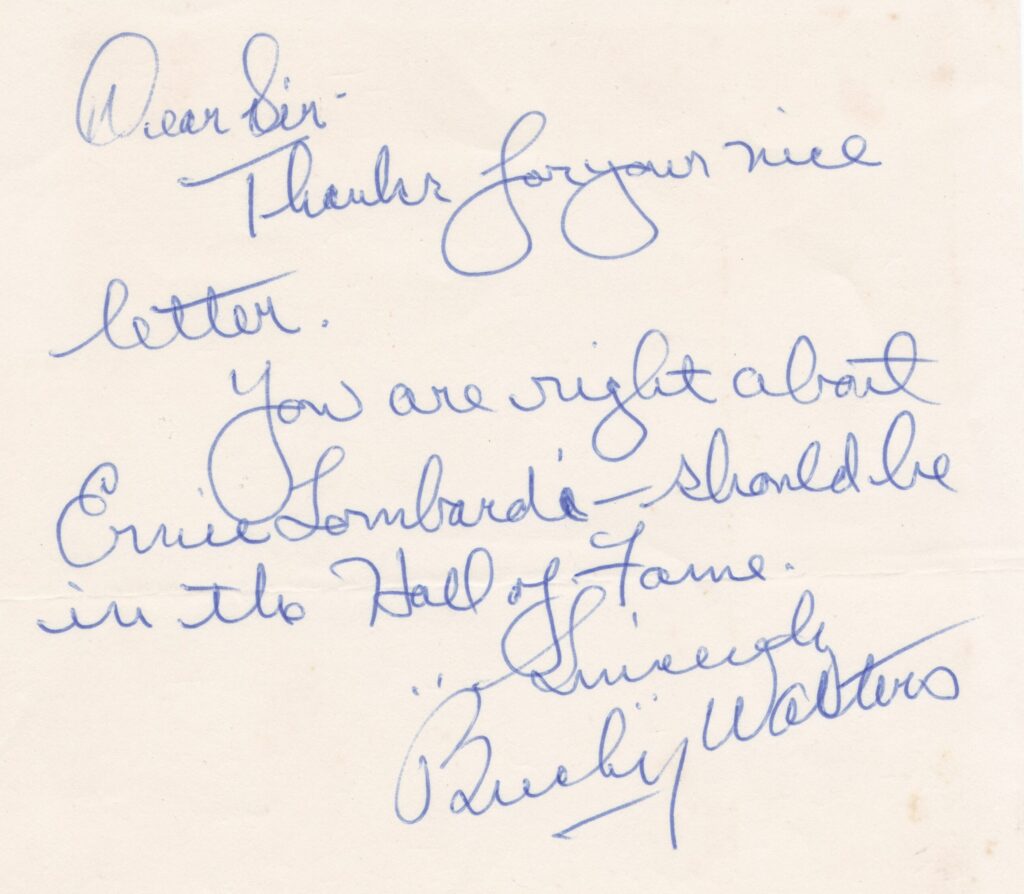 Dear Sir-
Thanks for your nice
letter.
You are right about
Ernie Lombardi - should be
in the Hall of Fame.
Sincerely
"Bucky" Walters